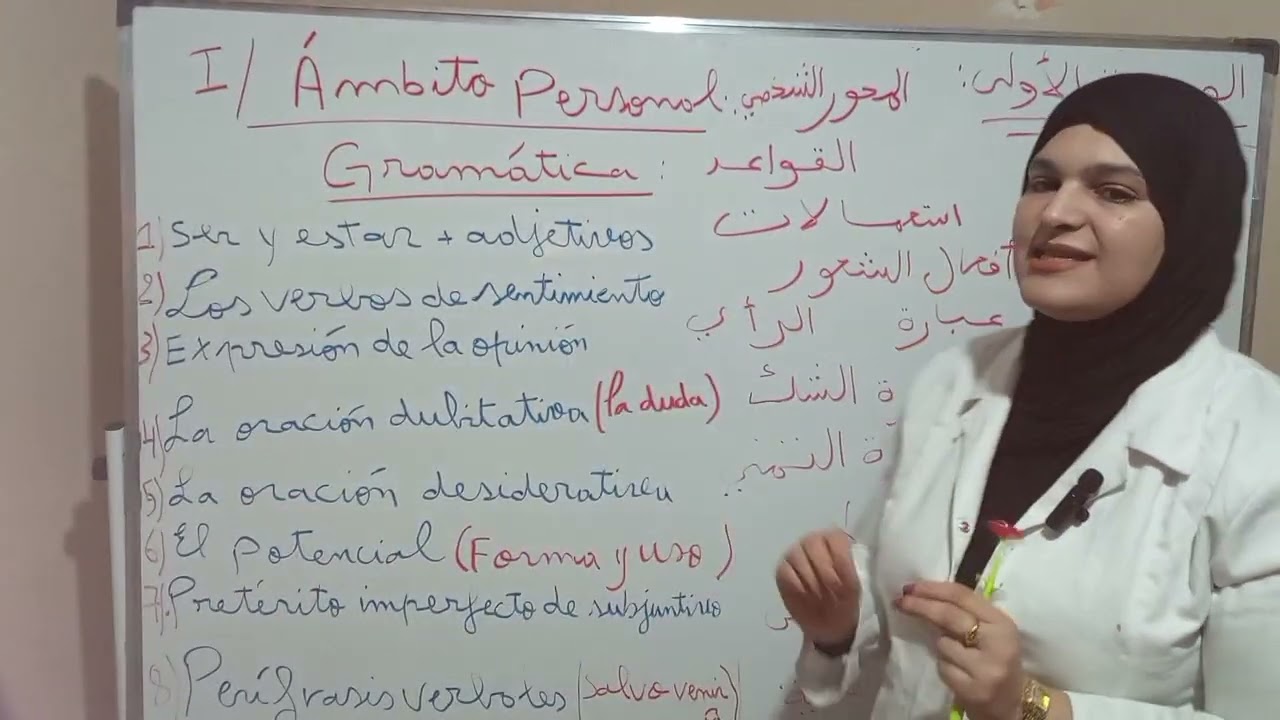 I/ Ámbito Personal: المحور الشخصي الأولى:
Gramática: القواعد
1) Ser y estar + adjetivos استعمالات
2) Los verbos de sentimiento أفعال الشعور
3) Expresión de la opinión عبارة الرأي
4) La oración dubitativa (la duda) ة الشك
5) La oración desiderativa ة التمني
6) El potencial (Forma y uso)
7) Pretérito imperfecto de subjuntivo
8) Perífrasis verbales (salvo venir)